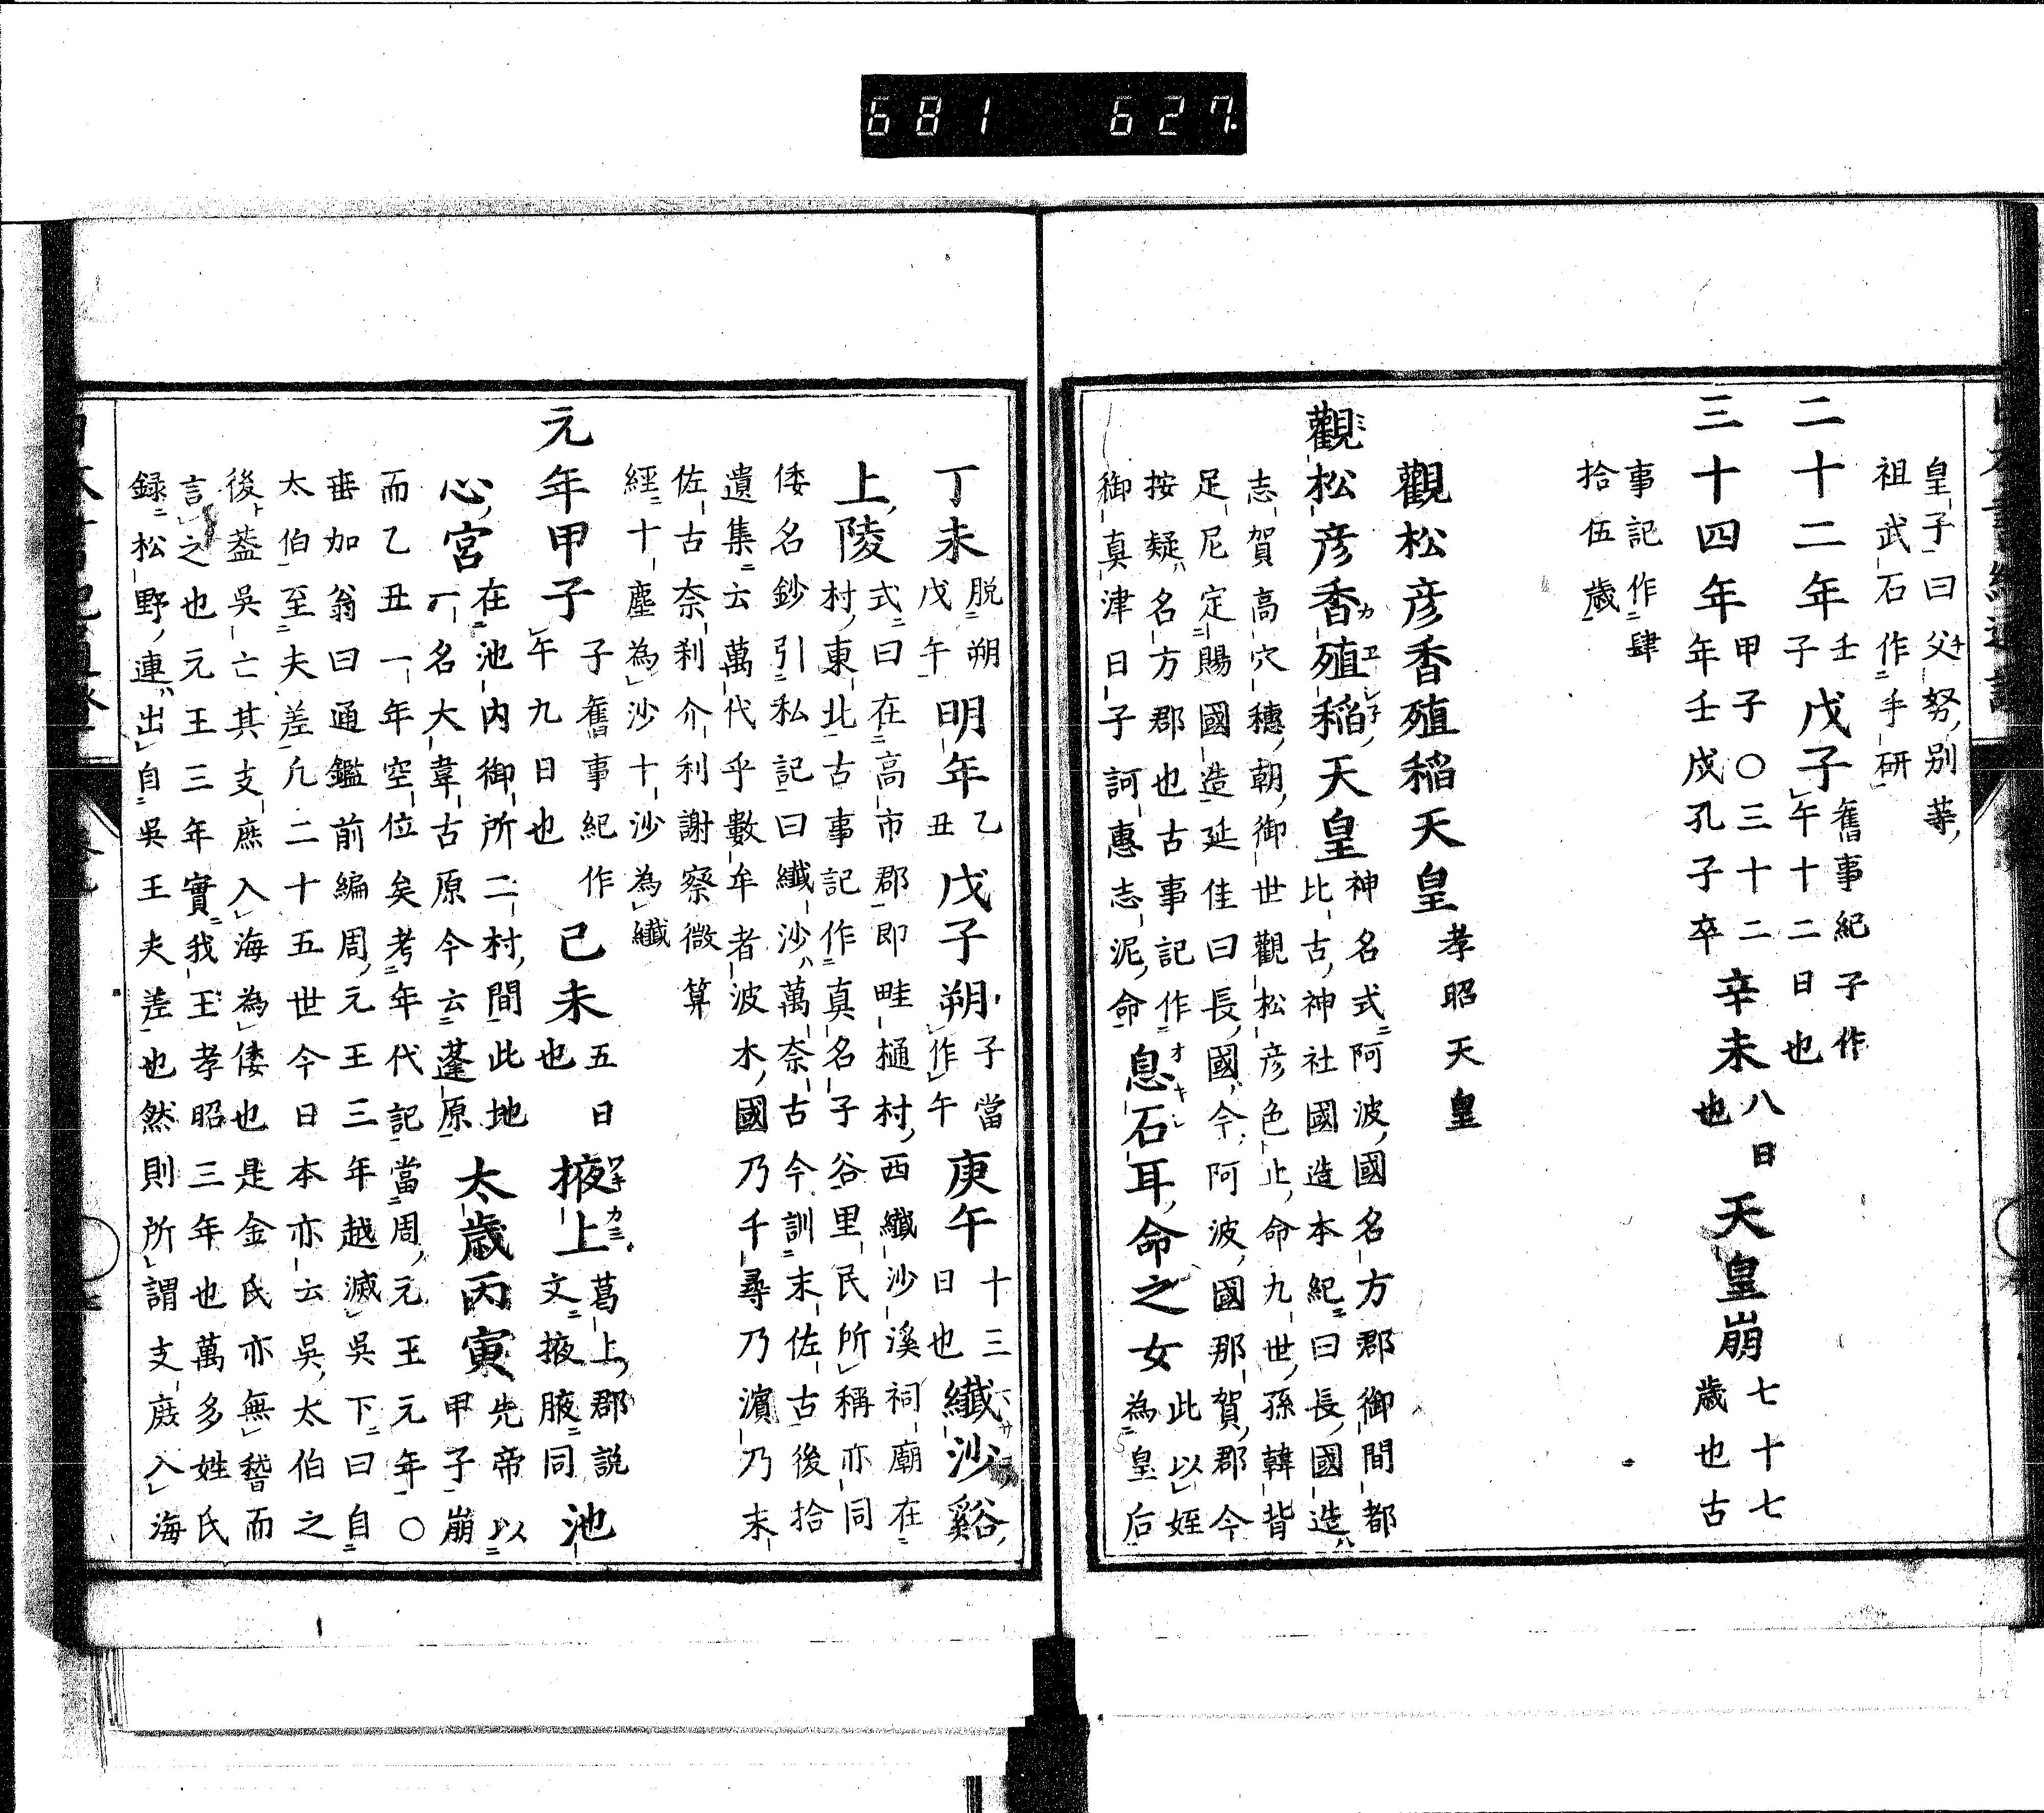 681 627.
皇子曰父努別等
祖武石作手研
二十二年壬子戊子舊事紀子作午十二日也
三十四年甲子〇三十二年壬戌孔子卒辛未八日也天皇崩七十七歳也古
事記作肆
拾伍歳
觀松彦香殖稲天皇孝昭天皇
觀松彦香殖稲天皇神名式阿波國名方郡御間都
比古神社國造本紀曰長國造
志賀高穴穗朝御世觀松彦色止命九世孫韓背
足尼定賜國造延佳曰長國今阿波國那賀郡今
按疑名方郡也古事記作
御真津日子訶惠志泥命息石耳命之女此以姪為皇后
丁未脱朔戊午明年乙丑戊子朔子當作午庚午十三日也纎沙谿
上陵式曰在高市郡即畦樋村西纎沙溪祠廟在
村東北古事記作真名子谷里民所稱亦同
倭名鈔引私記曰纎沙萬奈古今訓末佐古後拾
遺集云萬代乎數牟者波木國乃千尋乃濵乃末
佐古奈刹介利謝察微算
經十塵為沙十沙為纎
元年甲子子舊事紀作午九日也己未五日也掖上葛上郡説文掖腋同池
心宮在池内御所二村間此地
一名大韋古原今云蓬原太歳丙寅先帝以甲子崩
而乙丑一年空位矣考年代記當周元王元年〇
垂加翁曰通鑑前編周元王三年越滅吳下曰自
太伯至夫差凢二十五世今日本亦云吳太伯之
後葢吳亡其支庶入海為倭也是金氏亦無稽而
言之也元王三年實我王孝昭三年也萬多姓氏
録松野連出自吳王夫差也然則所謂支庶入海